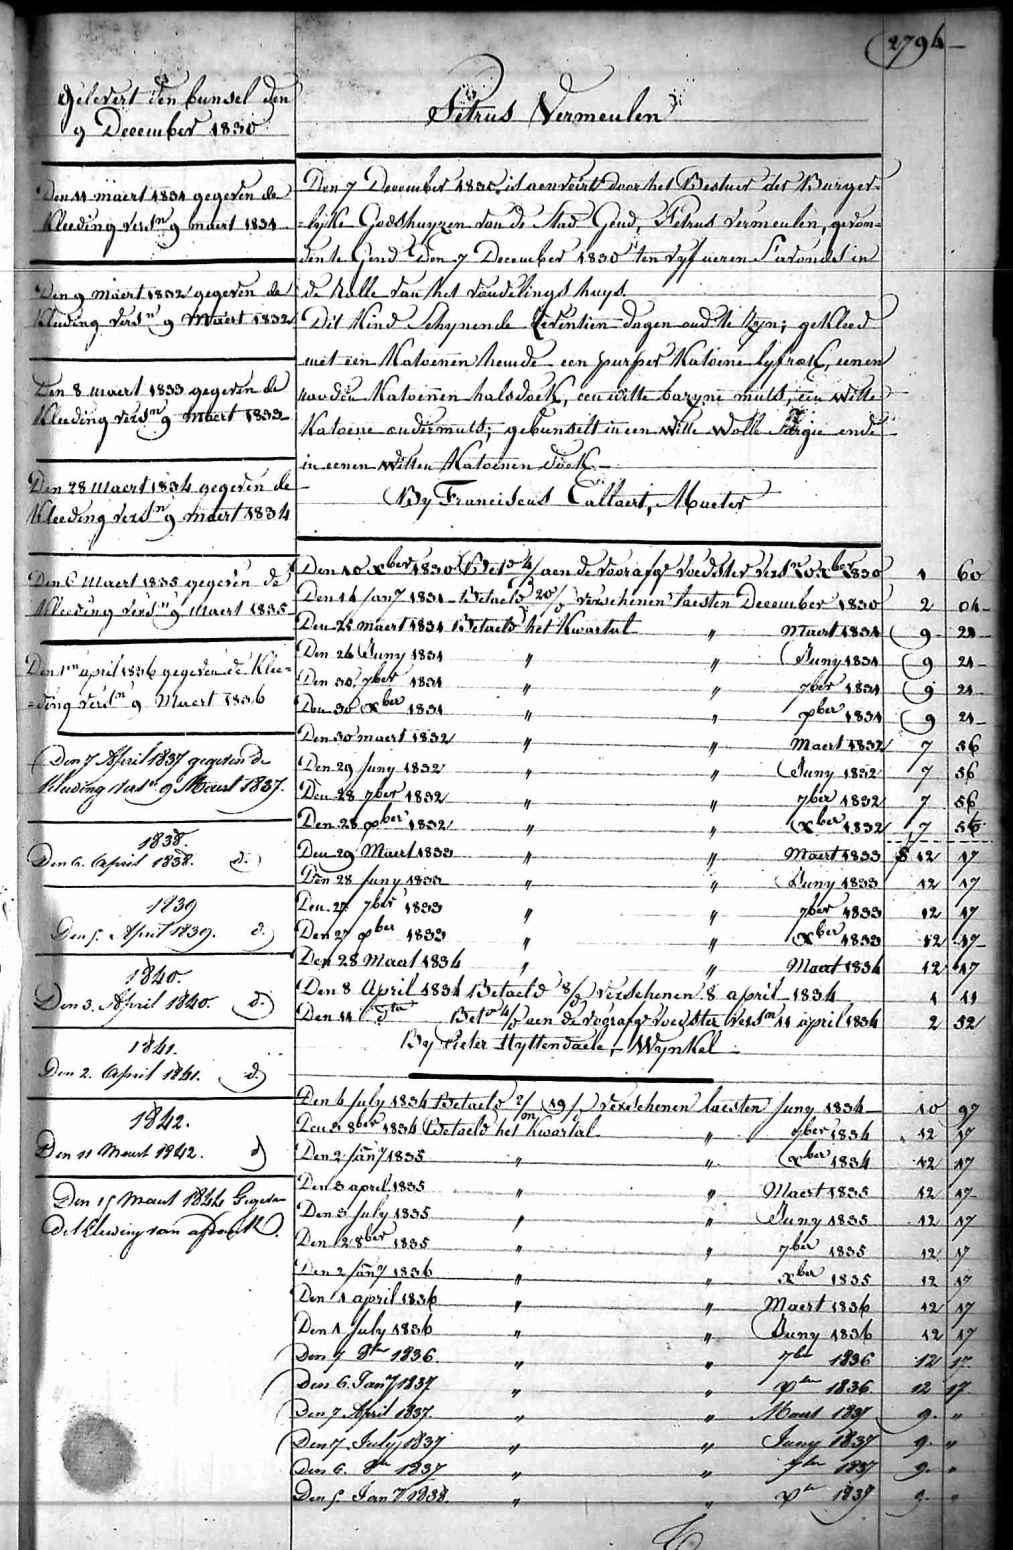 2794
Gelevert den bunsel den
9 December 1830
Petrus Vermeulen
Den 11 maert 1831 gegeven de
Kleeding versn 9 maert 1831
Den 9 maert 1832 gegeven de
Kleeding versn 9 Maert 1832
Den 8 maert 1833 gegeven de
Kleeding versn 9 maert 1833
Den 28 maert 1834 gegeven de
Kleeding versn 9 maert 1834
Den 6 Maert 1835 gegeven de
Kleeding versn 9 maert 1835
Den 1n april 1836 gegeven de Klee=
=ding versn 9 Maert 1836
Den 7 April 1837 gegeven de
Kleeding versn 9 Maert 1837.
1838.
Den 6. April 1838. d.
1839
Den 5. April 1839. d.
1840.
Den 3. April 1840. d.
1841.
Den 2. April 1841. d.
1842.
Den 11 Maert 1842. d
Den 15 Maert 1844 Gegeven
de Kleeding van
Den 7 December 1830 is aenveirt door het Bestier der Burger=
=lyke Godshuyzen van de Stad Gend, Petrus Vermeulen, gevon=
den te Gend Den 7 December 1830 ten vyf ueren S'avonds in
de Rolle van het vondelings huys.
Dit Kind Schynende Seventien dagen oud te Zyn; gekleed
met een Katoenen hemde een purper Katoene lyfrok, eenen
rooden Katoenen halsdoek, een witte bazyne muts, een witte
Katoene ondermuts; gebunselt in een witte wolle Sargie ende
in eenen witten Katoenen doek.
By Franciscus Callaert, Mueter
Den 10 Xber 1830 Betd 4/ aen de voorafge voedster versn 10 Xber 1830 1 60
Den 14 Jany 1831 Betaeld 20/ verschenen laesten December 1830 2 04
Den 25 maert 1831 Betaeld het Kwartal " Maert 1831 9 21
Den 26 Juny 1831 " " Juny 1831 9 21
Den 30 7ber 1831 " " 7ber 1831 9 21
Den 30 Xber 1831 " " Xber 1831 9 21
Den 30 maert 1832 " " Maert 1832 7 56
Den 29 Juny 1832 " " Juny 1832 7 56
Den 28 7ber 1832 " " 7ber 1832 7 56
Den 28 Xber 1832 " " Xber 1832 7 56
Den 29 Maert 1833 " " Maert 1833 12 17
Den 28 Juny 1833 " " Juny 1833 12 17
Den 27 7ber 1833 " " 7ber 1833 12 17
Den 27 Xber 1833 " " Xber 1833 12 17
Den 28 Maert 1834 " " Maert 1834 12 17
Den 8 April 1834 Betaeld 8/ verschenen 8 april 1834 1 11
Den 11 dto Betd 4/ aen de voorafge voedster versn 11 april 1834 2 52
By Pieter Hyttendaele, Wynkel
Den 4 July 1834 Betaeld 2/m 19/ verschenen laesten Juny 1834 10 97
Den 3 8ber 1834 Betaeld het Kwartal " 7ber 1834 12 17
Den 2 Jany 1835 " " Xber 1834 12 17
Den 3 april 1835 " " Maert 1835 12 17
Den 3 July 1835 " " Juny 1835 12 17
Den 2 8ber 1835 " " 7ber 1835 12 17
Den 2 Jany 1836 " " Xber 1835 12 17
Den 1 april 1836 " " Maert 1836 12 17
Den 1 July 1836 " " Juny 1836 12 17
Den 7 8ber 1836. " " 7ber 1836 12 17
Den 6. Jany 1837 " " Xber 1836 12 17
Den 7 April 1837. " " Maert 1837 9. "
Den 7 July 1837 " " Juny 1837 9. "
Den 6. 8ber 1837 " " 7ber 1837 9. "
Den 5. Jany 1838. " " Xber 1837 9. "